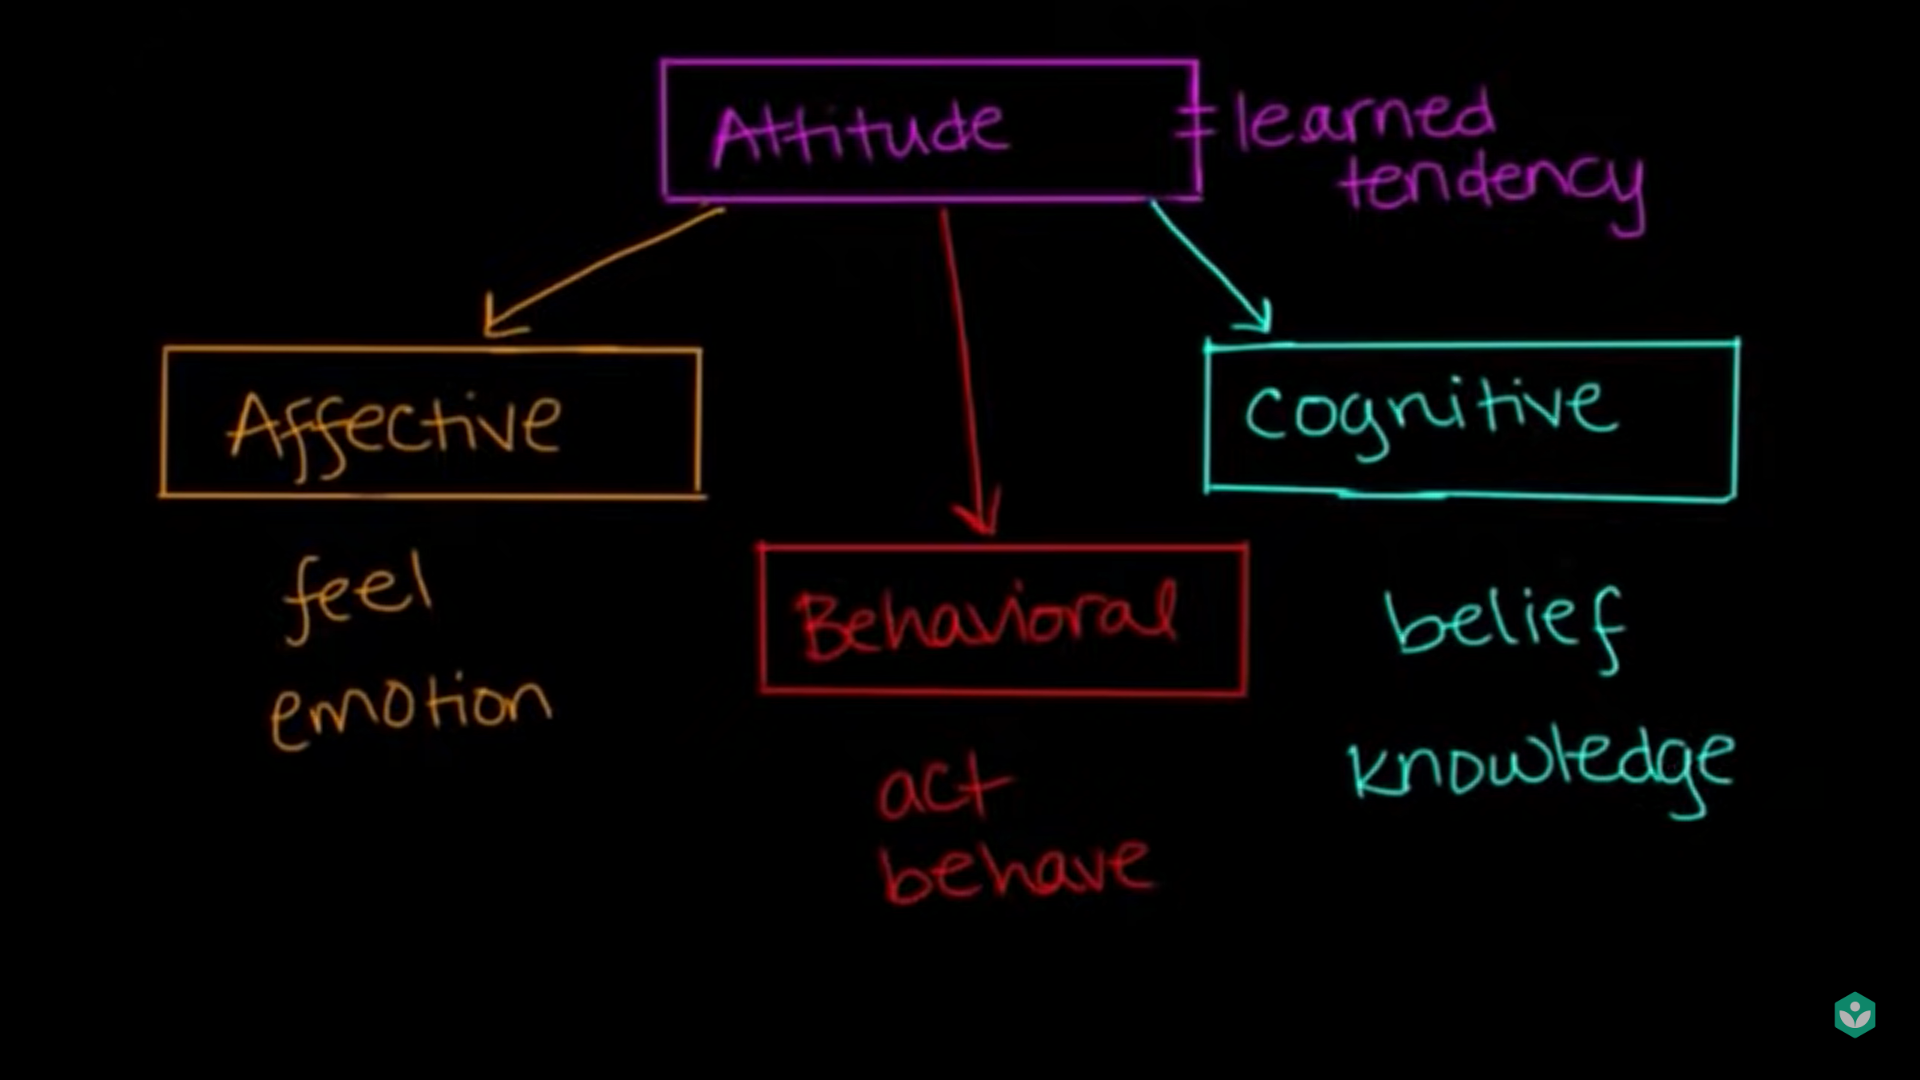 Attitude
= learned
tendency
Affective
feel
emotion
Behavioral
act
behave
Cognitive
belief
knowledge